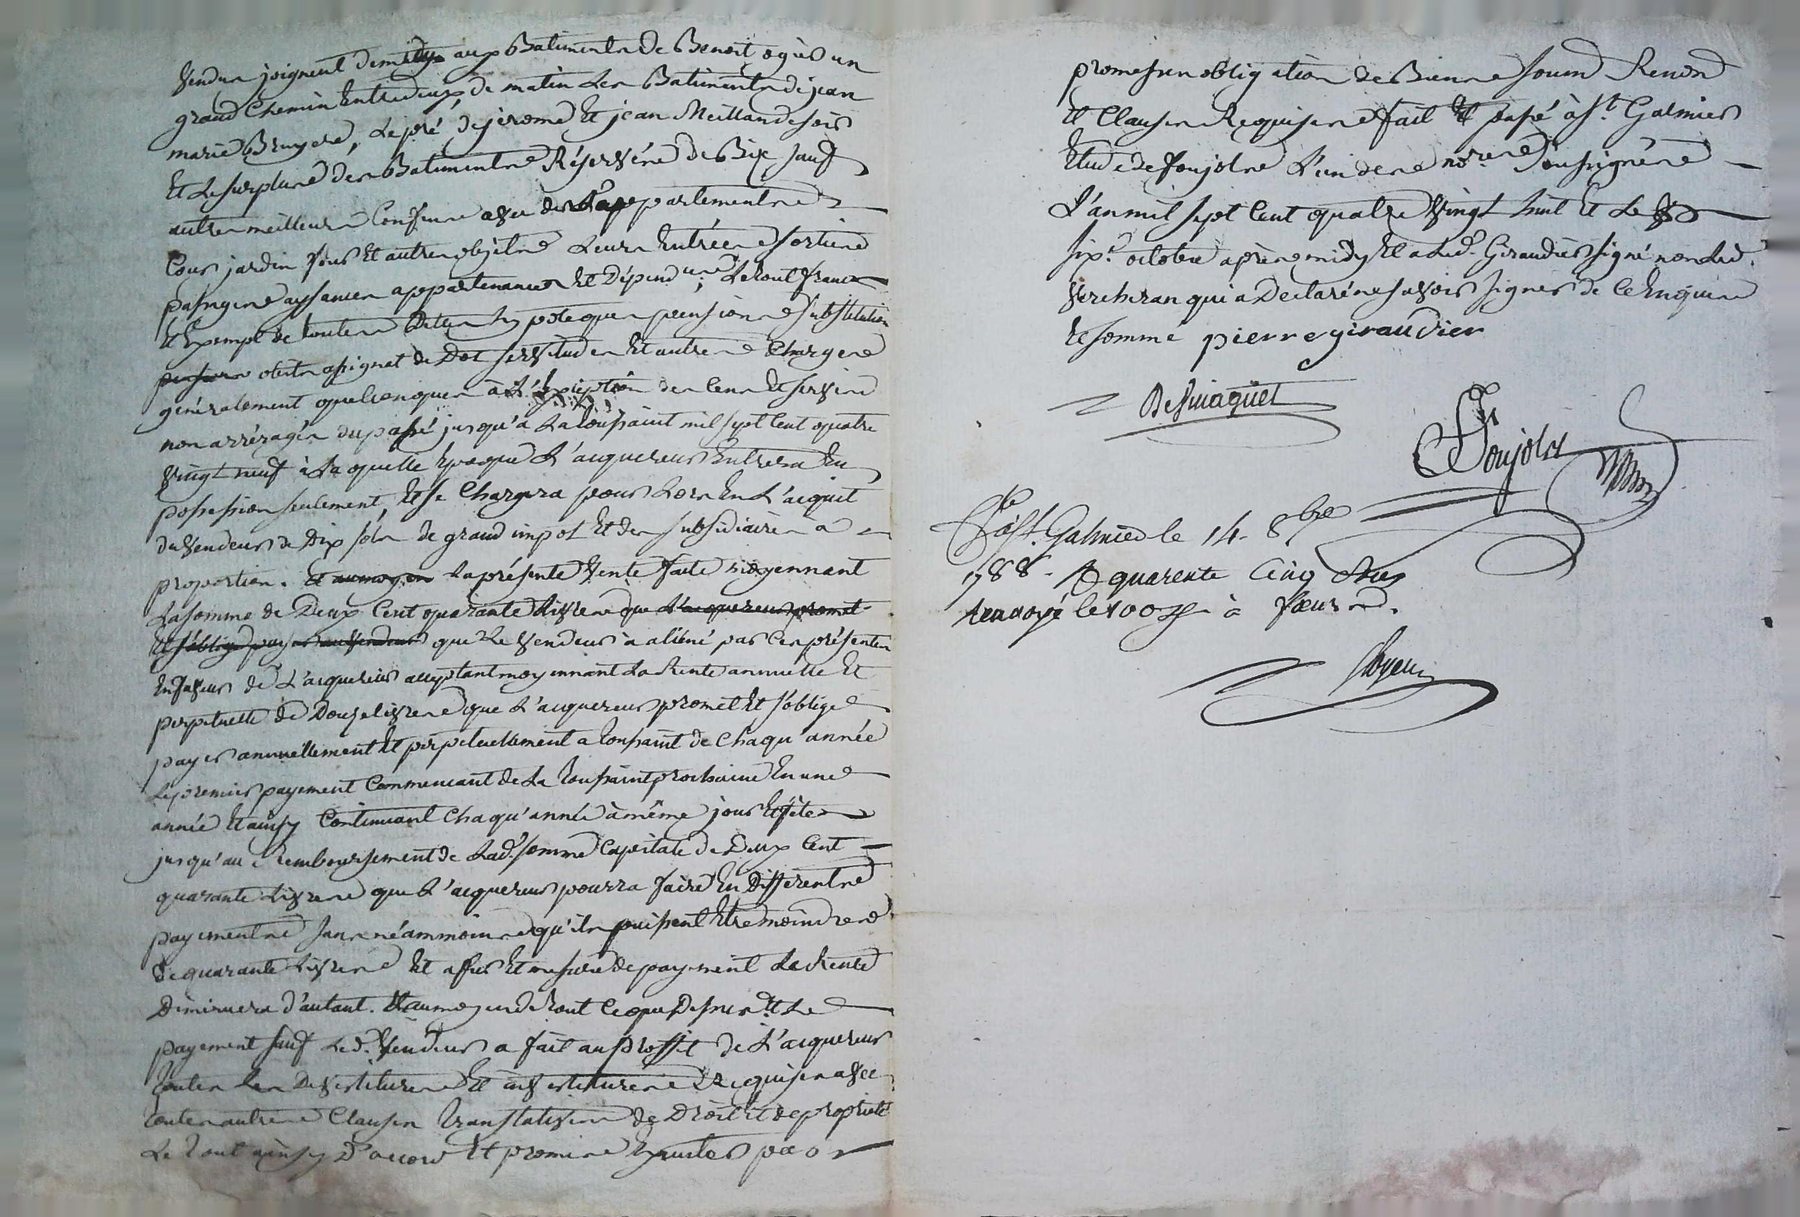 vendu joignent de midy aux Batiments de Benoit ogier un
grand Chemin Entredeux de matin Les Batiments de jean
marie Bruyere, Le pré de jerome Et jean Meilland soir
Et Le surplus des Batiments Réservés de Bize sauf
autres meilleurs Confins avec des appartements
Cour jardin four Et autres objets Leurs Entrées sorties
passages aysances appartenances Et Dépend.ces Le tout franc
Et Exempt de toutes Dettes hypoteques pensions substitution
obits assignat de Dot servitudes Et autres Charges
généralement quelconques à L'Exception des Cens Et servis
non arréragés du passé jusqu'à La toussaint mil sept Cent quatre
vingt neuf à Laquelle Epoque L'acquereur Entrera En
possession seulement, Et se Chargera pour Lors En L'acquit
du vendeur de Dix sols de grand impot Et des subsidiaires à
proportion. Et au moyen La présente vente faite moyennant
La somme de Deux Cent quarante Livres que L'acquereur promet
Et s'oblige payer au vendeur que Le vendeur a aliéné par Ces présentes
En faveur de L'acquereur acceptant moyennant La Rente annuelle Et
perpetuelle de Douze Livres que L'acquereur promet Et s'oblige
payer annuellement Et perpetuellement a toussaint de Chaqu'année
Le premier payement Commencant de La toussaint prochaine En une
année Et ainsy Continuant Chaqu'année à même jour Et fête
jusqu'au remboursement de Lad. somme Capitale de Deux Cent
quarante Livres que L'acquereur pourra faire En Differents
payements sans néammoins qu'ils puissent Etre moindres
de quarante Livres Et a fur Et mesure de payement La Rente
Diminuera d'autant. Et au moyen de tout Ce que Dessus Et Le
payement sauf Led. vendeur a fait au proffit de L'acquereur
toutes Les Devestitures Et investitures Requises avec
toutes autres Clauses translatives de Droit Et de propriété
Le tout ainsy D'accord Et promis Exécuter par
promesses obligation de Biens soum Renon
Et Clauses Requises fait Et passé à St. Galmier
Etude de foujols L'un des no.res soussignés
L'an mil sept Cent quatre vingt huit Et Le
six.e octobre après midy Et a Led. Giraudier signé non Led.
vercheran qui a Declaré ne savoir signer de Ce Enquis
Et sommé pierre giraudier
Desmaquet
Foujols
C.le à St. Galmier le 14. 8bre
1788. R quarante Cinq sous
renvoyé le 100.e à feurs.